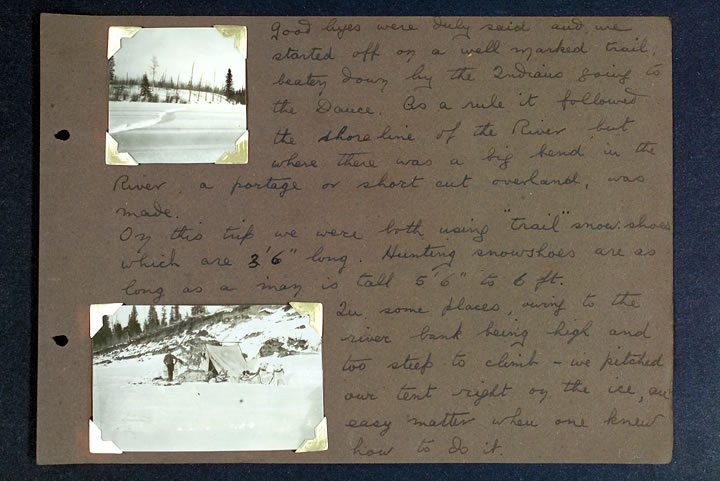 Good byes were duly said and we
started off on a well marked trail,
beaten down by the Indians going to
the Dance. As a rule it followed
the shore line of the River but
where there was a big bend in the
River, a portage or short cut overland, was
made.
On this trip we were both using "trail" snow shoes
which are 3'6" long. Hunting snowshoes are as
long as a man is tall 5'6" to 6 ft.
In some places, owing to the
river bank being high and
too steep to climb - we pitched
our tent right on the ice, an
easy matter when one knew
how to do it.